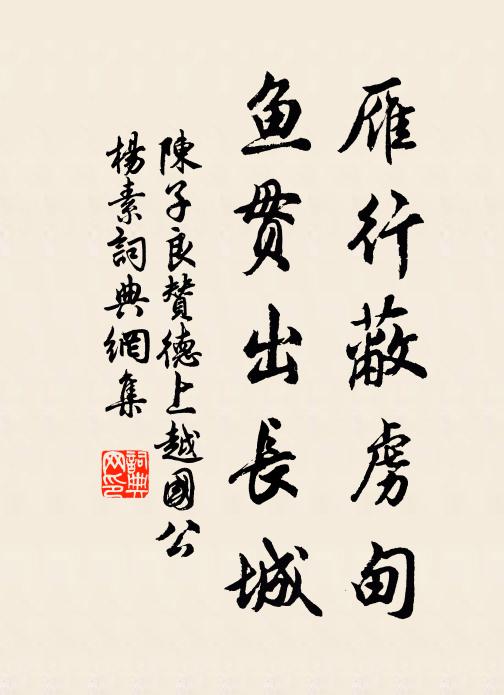 雁行蔽虏甸
鱼贯出長城
陳子良贊德上越國公
楊素詞典網集
詞典網印